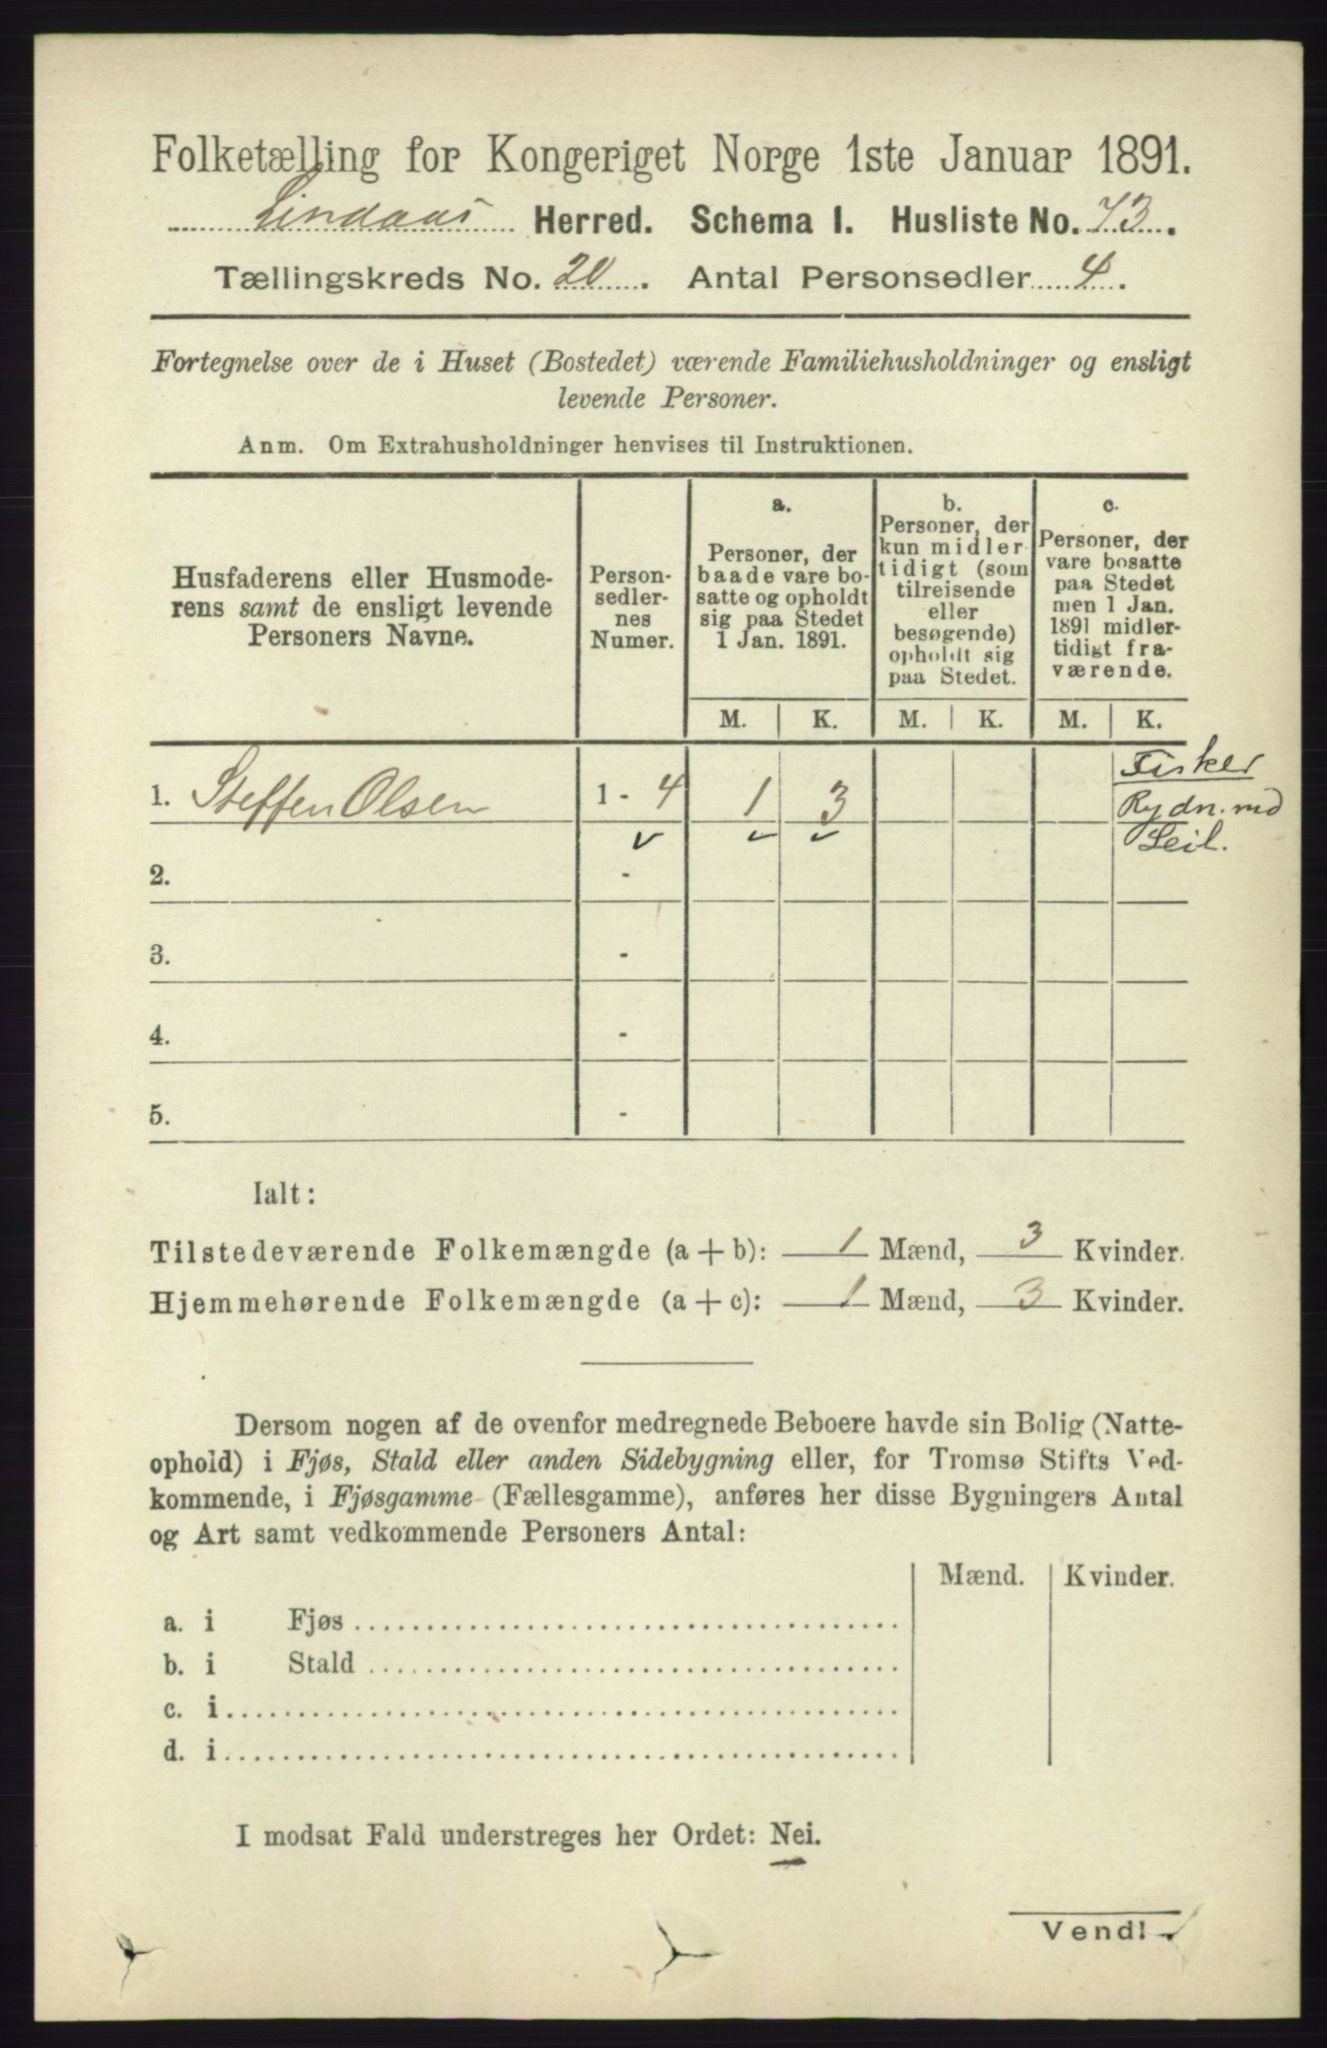 Folketælling for Kongeriget Norge 1ste Januar 1891.
Lindaas Herred. Schema 1. Husliste No. 73.
Tællingskreds No. 20. Antal Personsedler 4.
Fortegnelse over de i Huset (Bostedet) værende Familiehusholdninger og ensligt
levende Personer.
Anm. Om Extrahusholdninger henvises til Instruktionen.
Husfaderens eller Husmode-
rens samt de ensligt levende
Personers Navne.
Person-
sedler-
nes
Numer.
a.
Personer, der
baade vare bo-
satte og opholdt
sig paa Stedet
1 Jan. 1891.
b.
Personer, der
kun midler-
tidigt (som
tilreisende
eller
besøgende)
opholdt sig
paa Stedet.
c.
Personer, der
vare bosatte
paa Stedet
men 1 Jan.
1891 midler-
tidigt fra-
værende.
M. K. M. K. M. K.
1. Steffen Olsen 1 - 4 1 3
Fisker
Rydn. md
Leil.
2. -
3. -
4. -
5. -
Ialt:
Tilstedeværende Folkemængde (a + b): 1 Mænd, 3 Kvinder.
Hjemmehørende Folkemængde (a + c): 1 Mænd, 3 Kvinder.
Dersom nogen af de ovenfor medregnede Beboere havde sin Bolig (Natte-
ophold) i Fjøs, Stald eller anden Sidebygning eller, for Tromsø Stifts Ved-
kommende, i Fjøsgamme (Fællesgamme), anføres her disse Bygningers Antal
og Art samt vedkommende Personers Antal:
Mænd. Kvinder.
a. i Fjøs
b. i Stald
c. i
d. i
I modsat Fald understreges her Ordet: Nei.
Vend!